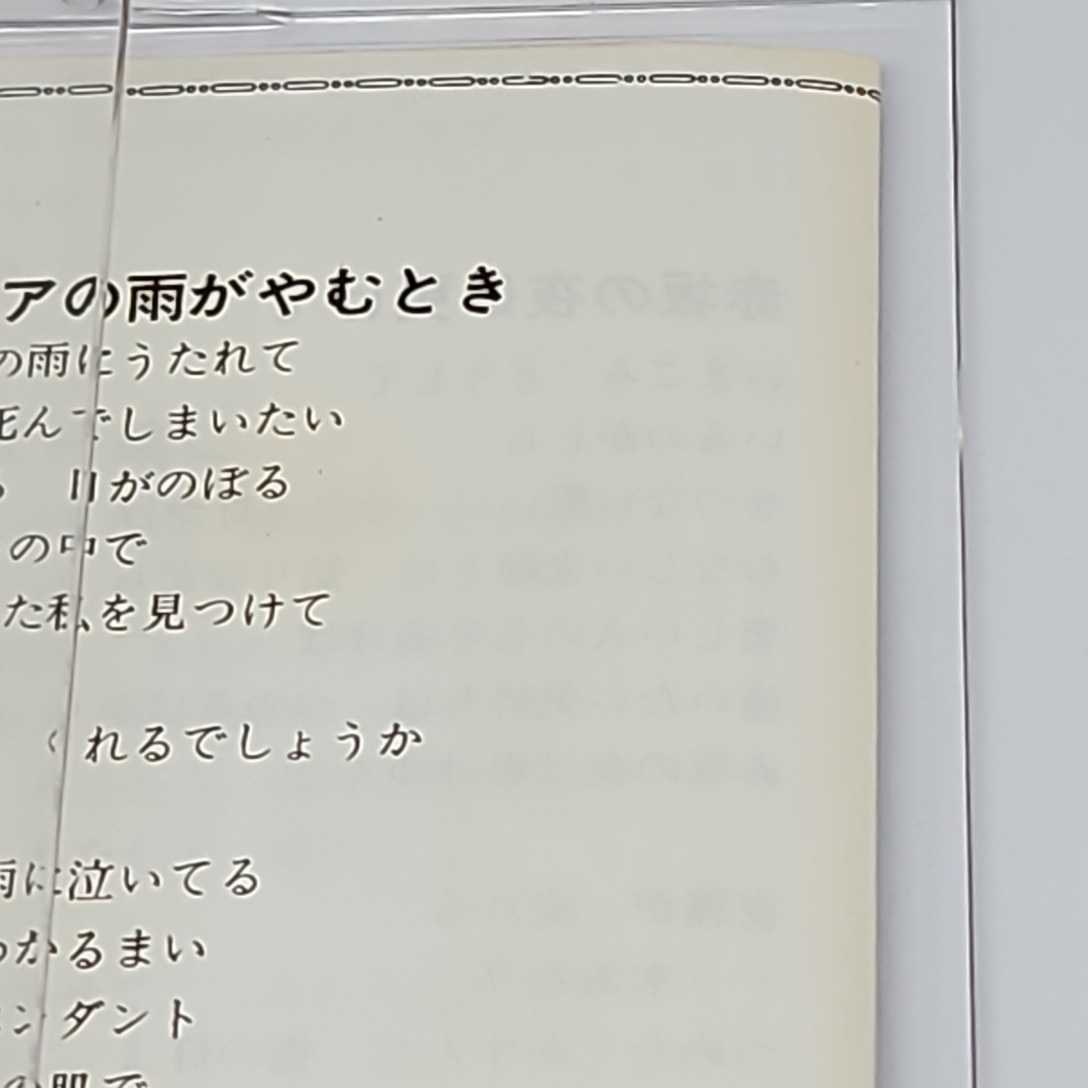 アの雨がやむとき
の雨にうたれて
死んでしまいたい
日がのぼる
の中で
た私を見つけて
くれるでしょうか
雨に泣いてる
わかるまい
ンダント
の肌で